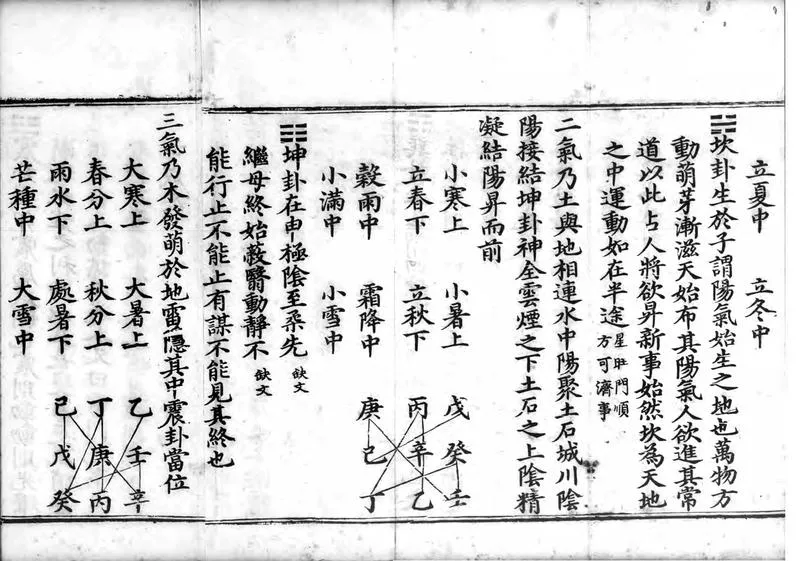 立夏中 立冬中
☵坎卦生於子謂陽氣始生之地也萬物方
動萌芽漸滋天始布其陽氣人欲進其常
道以此占人將欲昇新事始然坎為天地
之中運動如在半途 星旺門順 方可濟事
二氣乃土與地相連水中陽聚土石城川陰
陽接結坤卦神全雲煙之下土石之上陰精
凝結陽昇而前
小寒上 小暑上 戊癸壬
立春下 立秋下 丙辛乙
穀雨中 霜降中 庚己丁
小滿中 小雪中
☷坤卦在申極陰至柔先 缺文
繼母終始蔽翳動靜不 缺文
能行止不能止有謀不能見其終也
三氣乃木發萌於地震隱其中震卦當位
大寒上 大暑上 乙壬辛
春分上 秋分上 丁庚丙
雨水下 處暑下 己戊癸
芒種中 大雪中